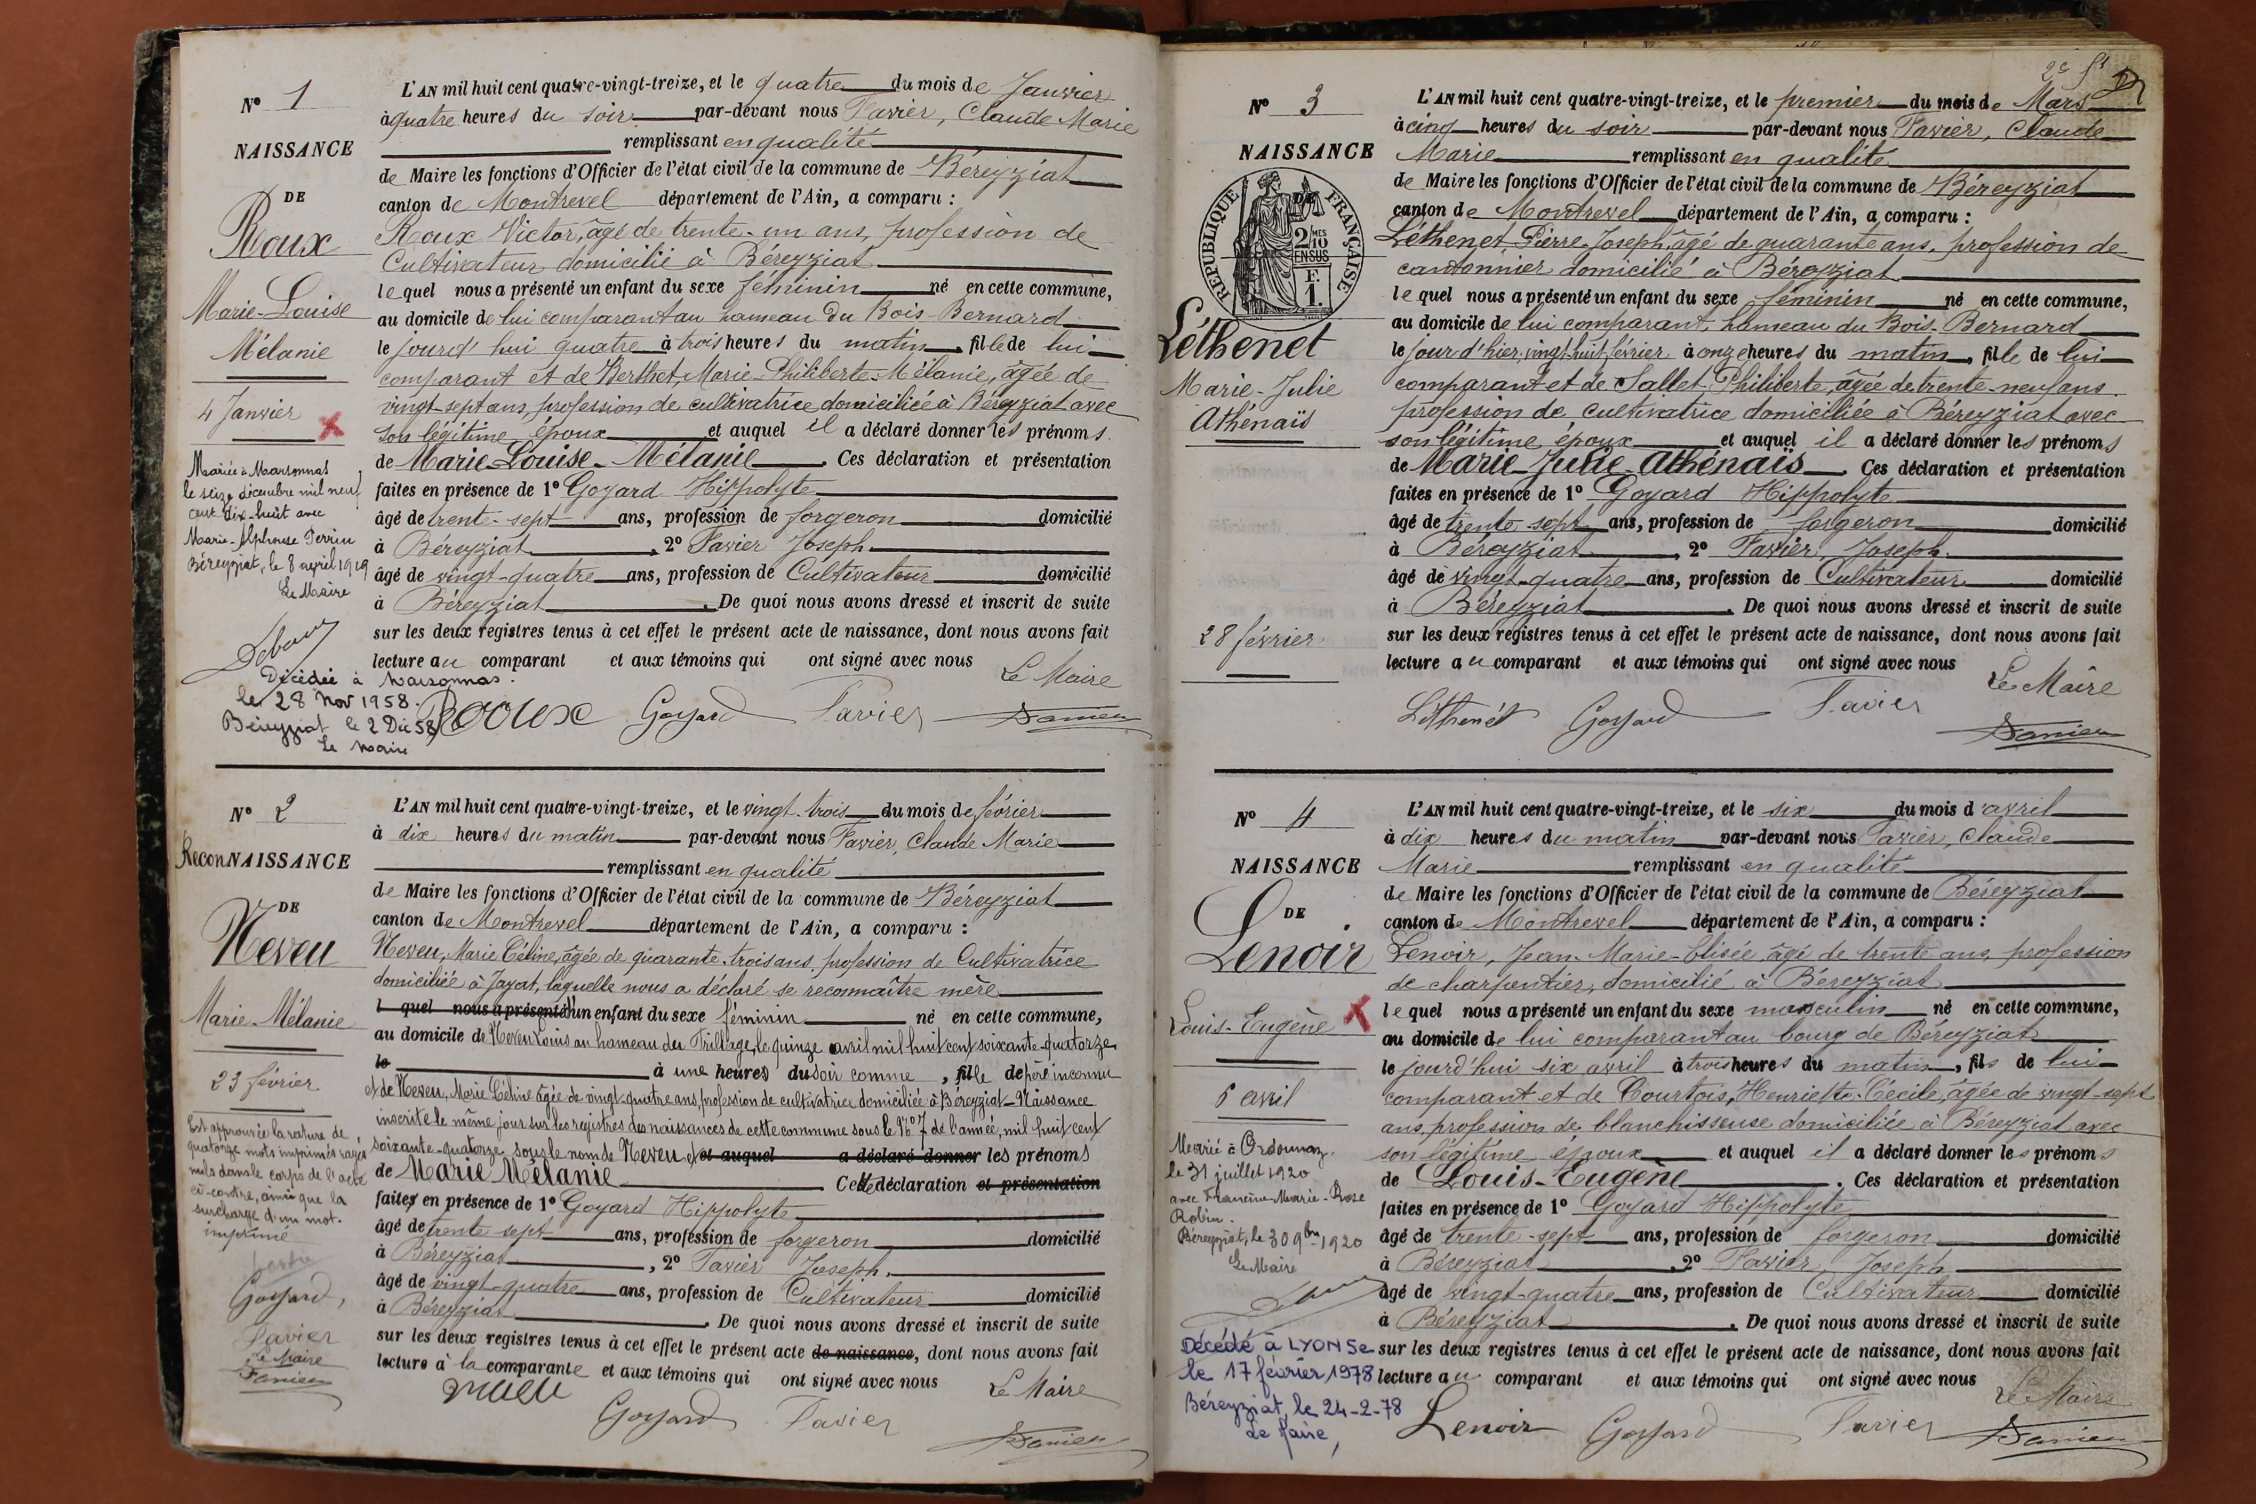 Nº 1
NAISSANCE
DE
Roux
Marie-Louise
Mélanie
4 Janvier
Mariée à Marsonnas
le seize décembre mil neuf
cent dix-huit avec
Marie-Alphonse Perrin
Béreyziat, le 8 avril 1919
Le Maire
Décédée à Marsonnas.
le 28 Nov 1958.
Béreyziat le 2 Déc 58
Le Maire
L'AN mil huit cent quatre-vingt-treize, et le quatre du mois de Janvier
à quatre heures du soir par-devant nous Favier, Claude Marie
remplissant en qualité
de Maire les fonctions d'Officier de l'état civil de la commune de Béreyziat
canton de Montrevel département de l'Ain, a comparu :
Roux Victor, âgé de trente-un ans, profession de
Cultivateur domicilié à Béreyziat
lequel nous a présenté un enfant du sexe féminin né en cette commune,
au domicile de lui comparant au hameau du Bois-Bernard
le jourd'hui quatre à trois heures du matin, fille de lui
comparant et de Berthet, Marie-Philiberte-Mélanie, âgée de
vingt-sept ans, profession de cultivatrice domiciliée à Béreyziat avec
son légitime époux et auquel il a déclaré donner les prénoms
de Marie-Louise-Mélanie. Ces déclaration et présentation
faites en présence de 1º Goyard Hippolyte
âgé de trente-sept ans, profession de forgeron domicilié
à Béreyziat, 2º Favier Joseph
âgé de vingt-quatre ans, profession de Cultivateur domicilié
à Béreyziat. De quoi nous avons dressé et inscrit de suite
sur les deux registres tenus à cet effet le présent acte de naissance, dont nous avons fait
lecture au comparant et aux témoins qui ont signé avec nous
Le Maire
Roux Goyard Favier
Nº 2
ReconNAISSANCE
DE
Neveu
Marie-Mélanie
23 février
Est approuvée la rature de
quatorze mots imprimés rayés
nuls dans le corps de l'acte
ci-contre, ainsi que la
surcharge d'un mot
imprimé
Goyard,
Favier
Le Maire
L'AN mil huit cent quatre-vingt-treize, et le vingt-trois du mois de février
à dix heures du matin par-devant nous Favier, Claude Marie
remplissant en qualité
de Maire les fonctions d'Officier de l'état civil de la commune de Béreyziat
canton de Montrevel département de l'Ain, a comparu :
Neveu, Marie Céline, âgée de quarante-trois ans, profession de Cultivatrice
domiciliée à Jayat, laquelle nous a déclaré se reconnaître mère
l quel nous a présenté d'un enfant du sexe féminin né en cette commune,
au domicile de Neveu Louis au hameau du Trillage, le quinze avril mil huit cent soixante-quatorze
le à une heures du soir comme, fille de père inconnu
et de Neveu, Marie Céline âgée de vingt-quatre ans, profession de cultivatrice domiciliée à Béreyziat-Naissance
inscrite le même jour sur les registres des naissances de cette commune sous le Nº 7 de l'année, mil huit cent
soixante-quatorze, sous le nom de Neveu et et auquel a déclaré donner les prénoms
de Marie Mélanie Cette déclaration et présentation
faites en présence de 1º Goyard Hippolyte
âgé de trente sept ans, profession de forgeron domicilié
à Béreyziat, 2º Favier Joseph
âgé de vingt-quatre ans, profession de Cultivateur domicilié
à Béreyziat. De quoi nous avons dressé et inscrit de suite
sur les deux registres tenus à cet effet le présent acte de naissance, dont nous avons fait
lecture à la comparante et aux témoins qui ont signé avec nous
Le Maire
Goyard Favier
Nº 3
NAISSANCE
DE
RÉPUBLIQUE FRANÇAISE
2/10
EN SUS
F.
1.
Léthenet
Marie-Julie
Athénaïs
28 février
L'AN mil huit cent quatre-vingt-treize, et le premier du mois de Mars
à cinq heures du soir par-devant nous Favier, Claude
Marie remplissant en qualité
de Maire les fonctions d'Officier de l'état civil de la commune de Béreyziat
canton de Montrevel département de l'Ain, a comparu :
Léthenet, Pierre-Joseph, âgé de quarante ans, profession de
cantonnier domicilié à Béreyziat
lequel nous a présenté un enfant du sexe féminin né en cette commune,
au domicile de lui comparant, hameau du Bois-Bernard
le jour d'hier, vingt-huit février à onze heures du matin, fille de lui
comparant et de Sallet Philiberte, âgée de trente-neuf ans
profession de cultivatrice domiciliée à Béreyziat avec
son légitime époux et auquel il a déclaré donner les prénoms
de Marie-Julie-Athénaïs. Ces déclaration et présentation
faites en présence de 1º Goyard Hippolyte
âgé de trente-sept ans, profession de forgeron domicilié
à Béreyziat, 2º Favier, Joseph
âgé de vingt-quatre ans, profession de Cultivateur domicilié
à Béreyziat. De quoi nous avons dressé et inscrit de suite
sur les deux registres tenus à cet effet le présent acte de naissance, dont nous avons fait
lecture au comparant et aux témoins qui ont signé avec nous
Le Maire
Léthenét Goyard Favier
Nº 4
NAISSANCE
DE
Lenoir
Louis-Eugène
6 avril
Marié à Ordonnaz
le 31 juillet 1920
avec Francine-Marie-Rose
Robin.
Béreyziat, le 30 9bre 1920
Le Maire
Décédé à LYON 5e
le 17 février 1978
Béreyziat, le 24-2-78
Le Maire,
L'AN mil huit cent quatre-vingt-treize, et le six du mois d'avril
à dix heures du matin par-devant nous Favier, Claude
Marie remplissant en qualité
de Maire les fonctions d'Officier de l'état civil de la commune de Béreyziat
canton de Montrevel département de l'Ain, a comparu :
Lenoir, Jean-Marie-Elisée, âgé de trente ans, profession
de charpentier, domicilié à Béreyziat
lequel nous a présenté un enfant du sexe masculin né en cette commune,
au domicile de lui comparant au bourg de Béreyziat
le jourd'hui six avril à trois heures du matin, fils de lui
comparant et de Courtois, Henriette-Cécile, âgée de vingt-sept
ans, profession de blanchisseuse domiciliée à Béreyziat avec
son légitime époux et auquel il a déclaré donner les prénoms
de Louis-Eugène. Ces déclaration et présentation
faites en présence de 1º Goyard Hippolyte
âgé de trente-sept ans, profession de forgeron domicilié
à Béreyziat, 2º Favier, Joseph
âgé de vingt-quatre ans, profession de Cultivateur domicilié
à Béreyziat. De quoi nous avons dressé et inscrit de suite
sur les deux registres tenus à cet effet le présent acte de naissance, dont nous avons fait
lecture au comparant et aux témoins qui ont signé avec nous
Le Maire
Lenoir Goyard Favier